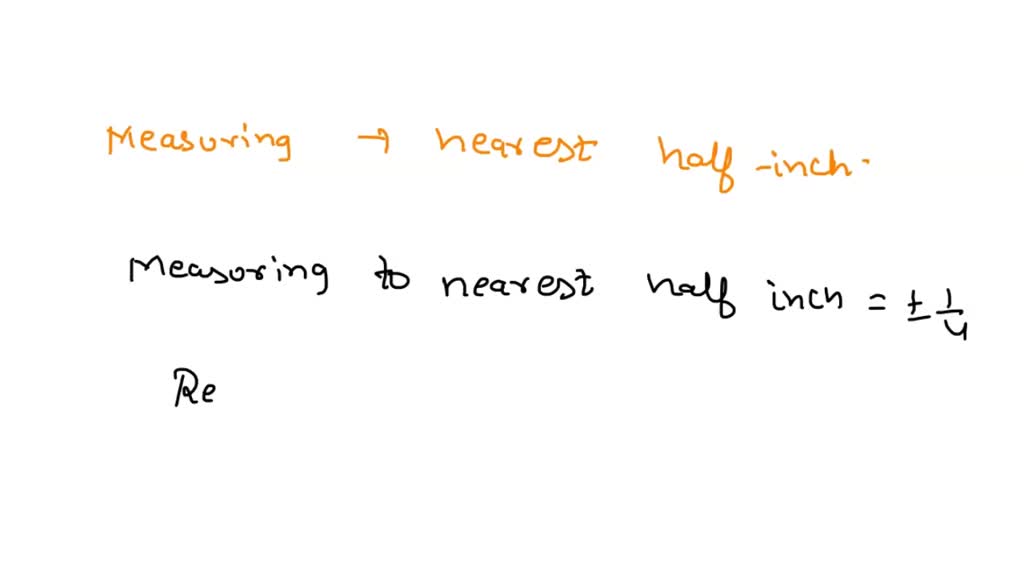 Measuring → nearest half-inch.
Measuring to nearest half inch = ± 1/4
Re